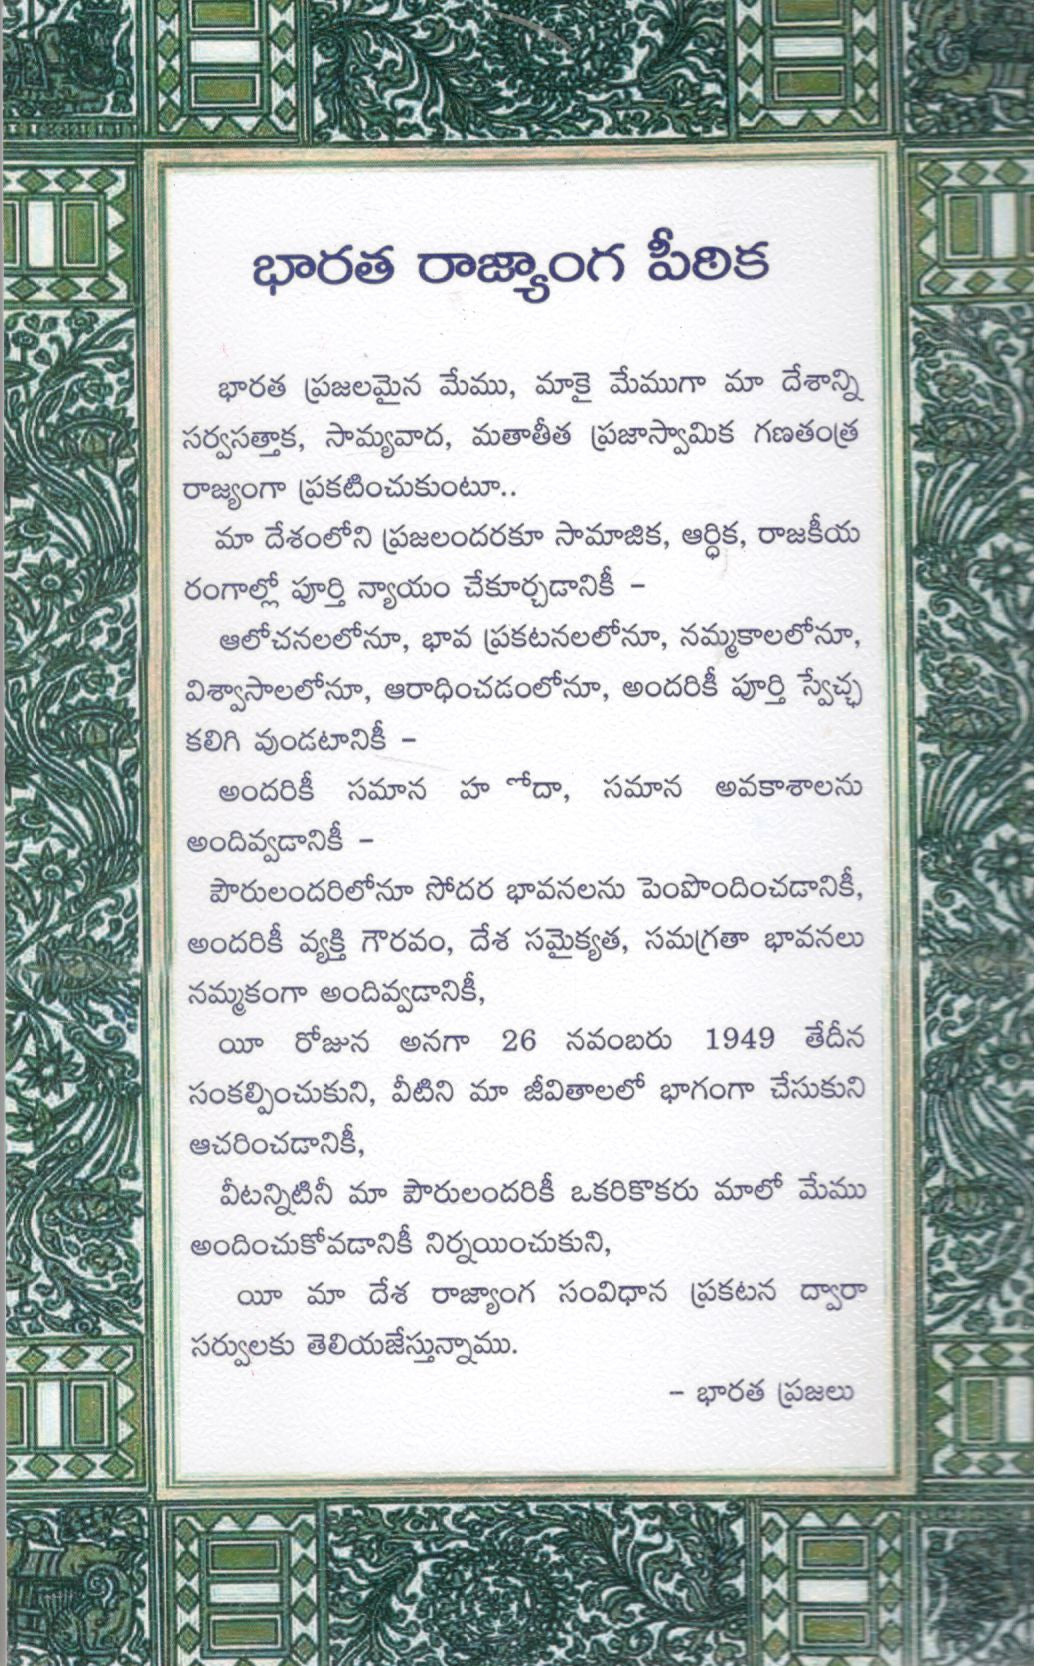 భారత రాజ్యాంగ పీఠిక
భారత ప్రజలమైన మేము, మాకై మేముగా మా దేశాన్ని
సర్వసత్తాక, సామ్యవాద, మతాతీత ప్రజాస్వామిక గణతంత్ర
రాజ్యంగా ప్రకటించుకుంటూ..
మా దేశంలోని ప్రజలందరకూ సామాజిక, ఆర్ధిక, రాజకీయ
రంగాల్లో పూర్తి న్యాయం చేకూర్చడానికీ –
ఆలోచనలలోనూ, భావ ప్రకటనలలోనూ, నమ్మకాలలోనూ,
విశ్వాసాలలోనూ, ఆరాధించడంలోనూ, అందరికీ పూర్తి స్వేచ్ఛ
కలిగి వుండటానికీ –
అందరికీ సమాన హ ోదా, సమాన అవకాశాలను
అందివ్వడానికీ –
పౌరులందరిలోనూ సోదర భావనలను పెంపొందించడానికీ,
అందరికీ వ్యక్తి గౌరవం, దేశ సమైక్యత, సమగ్రతా భావనలు
నమ్మకంగా అందివ్వడానికీ,
యీ రోజున అనగా 26 నవంబరు 1949 తేదీన
సంకల్పించుకుని, వీటిని మా జీవితాలలో భాగంగా చేసుకుని
ఆచరించడానికీ,
వీటన్నిటినీ మా పౌరులందరికీ ఒకరికొకరు మాలో మేము
అందించుకోవడానికీ నిర్ణయించుకుని,
యీ మా దేశ రాజ్యాంగ సంవిధాన ప్రకటన ద్వారా
సర్వులకు తెలియజేస్తున్నాము.
– భారత ప్రజలు